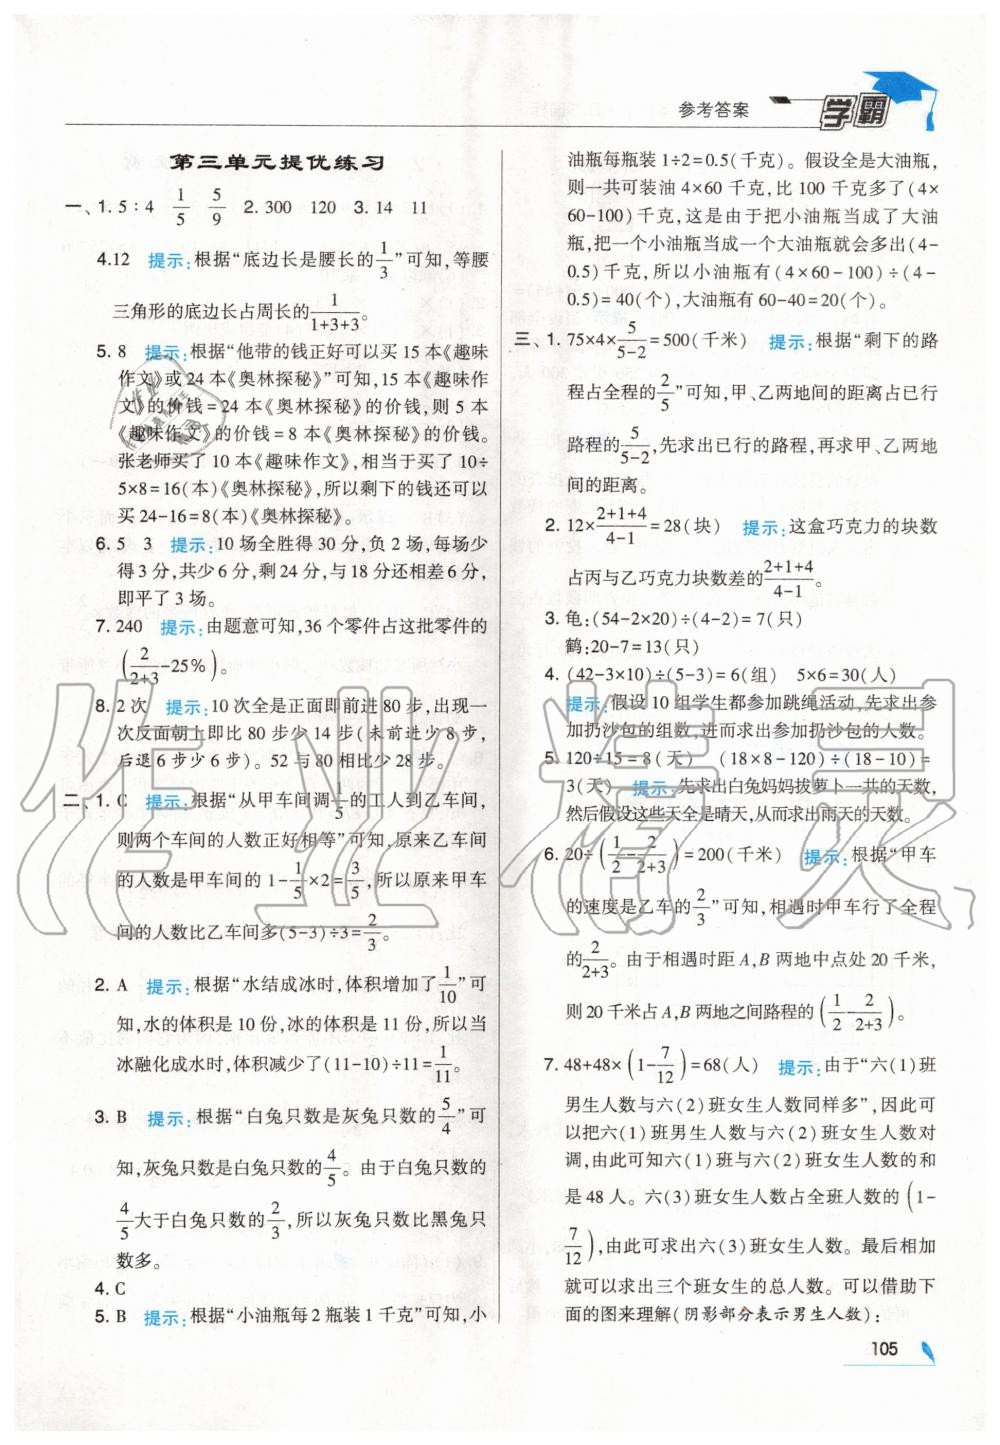 参考答案 学霸
第三单元提优练习
一、1. 5∶4 1/5 5/9 2. 300 120 3. 14 11
4. 12 提示:根据“底边长是腰长的1/3”可知,等腰
三角形的底边长占周长的1/(1+3+3)。
5. 8 提示:根据“他带的钱正好可以买 15 本《趣味
作文》或 24 本《奥林探秘》”可知,15 本《趣味作
文》的价钱=24 本《奥林探秘》的价钱,则 5 本
《趣味作文》的价钱=8 本《奥林探秘》的价钱。
张老师买了 10 本《趣味作文》,相当于买了 10÷
5×8=16(本)《奥林探秘》,所以剩下的钱还可以
买 24-16=8(本)《奥林探秘》。
6. 5 3 提示:10 场全胜得 30 分,负 2 场,每场少
得 3 分,共少 6 分,剩 24 分,与 18 分还相差 6 分,
即平了 3 场。
7. 240 提示:由题意可知,36 个零件占这批零件的
(2/(2+3)-25%)。
8. 2 次 提示:10 次全是正面即前进 80 步,出现一
次反面朝上即比 80 步少 14 步(未前进少 8 步,
后退 6 步少 6 步)。52 与 80 相比少 28 步。
二、1. C 提示:根据“从甲车间调1/5的工人到乙车间,
则两个车间的人数正好相等”可知,原来乙车间
的人数是甲车间的 1-1/5×2=3/5,所以原来甲车
间的人数比乙车间多(5-3)÷3=2/3。
2. A 提示:根据“水结成冰时,体积增加了1/10”可
知,水的体积是 10 份,冰的体积是 11 份,所以当
冰融化成水时,体积减少了(11-10)÷11=1/11。
3. B 提示:根据“白兔只数是灰兔只数的5/4”可
知,灰兔只数是白兔只数的4/5。由于白兔只数的
4/5大于白兔只数的2/3,所以灰兔只数比黑兔只
数多。
4. C
5. B 提示:根据“小油瓶每 2 瓶装 1 千克”可知,小
油瓶每瓶装 1÷2=0.5(千克)。假设全是大油瓶,
则一共可装油 4×60 千克,比 100 千克多了(4×
60-100)千克,这是由于把小油瓶当成了大油
瓶,把一个小油瓶当成一个大油瓶就会多出(4-
0.5)千克,所以小油瓶有(4×60-100)÷(4-
0.5)=40(个),大油瓶有 60-40=20(个)。
三、1. 75×4×5/(5-2)=500(千米) 提示:根据“剩下的路
程占全程的2/5”可知,甲、乙两地间的距离占已行
路程的5/(5-2),先求出已行的路程,再求甲、乙两地
间的距离。
2. 12×(2+1+4)/(4-1)=28(块) 提示:这盒巧克力的块数
占丙与乙巧克力块数差的(2+1+4)/(4-1)。
3. 龟:(54-2×20)÷(4-2)=7(只)
鹤:20-7=13(只)
4. (42-3×10)÷(5-3)=6(组) 5×6=30(人)
提示:假设 10 组学生都参加跳绳活动,先求出参
加扔沙包的组数,进而求出参加扔沙包的人数。
5. 120÷15=8(天) (18×8-120)÷(18-10)=
3(天) 提示:先求出白兔妈妈拔萝卜一共的天数,
然后假设这些天全是晴天,从而求出雨天的天数。
6. 20÷(1/2-2/(2+3))=200(千米) 提示:根据“甲车
的速度是乙车的2/3”可知,相遇时甲车行了全程
的2/(2+3)。由于相遇时距 A,B 两地中点处 20 千米,
则 20 千米占 A,B 两地之间路程的(1/2-2/(2+3))。
7. 48+48×(1-7/12)=68(人) 提示:由于“六(1)班
男生人数与六(2)班女生人数同样多”,因此可
以把六(1)班男生人数与六(2)班女生人数对
调,由此可知六(1)班与六(2)班女生人数的和
是 48 人。六(3)班女生人数占全班人数的(1-
7/12),由此可求出六(3)班女生人数。最后相加
就可以求出三个班女生的总人数。可以借助下
面的图来理解(阴影部分表示男生人数):
105
作业精灵